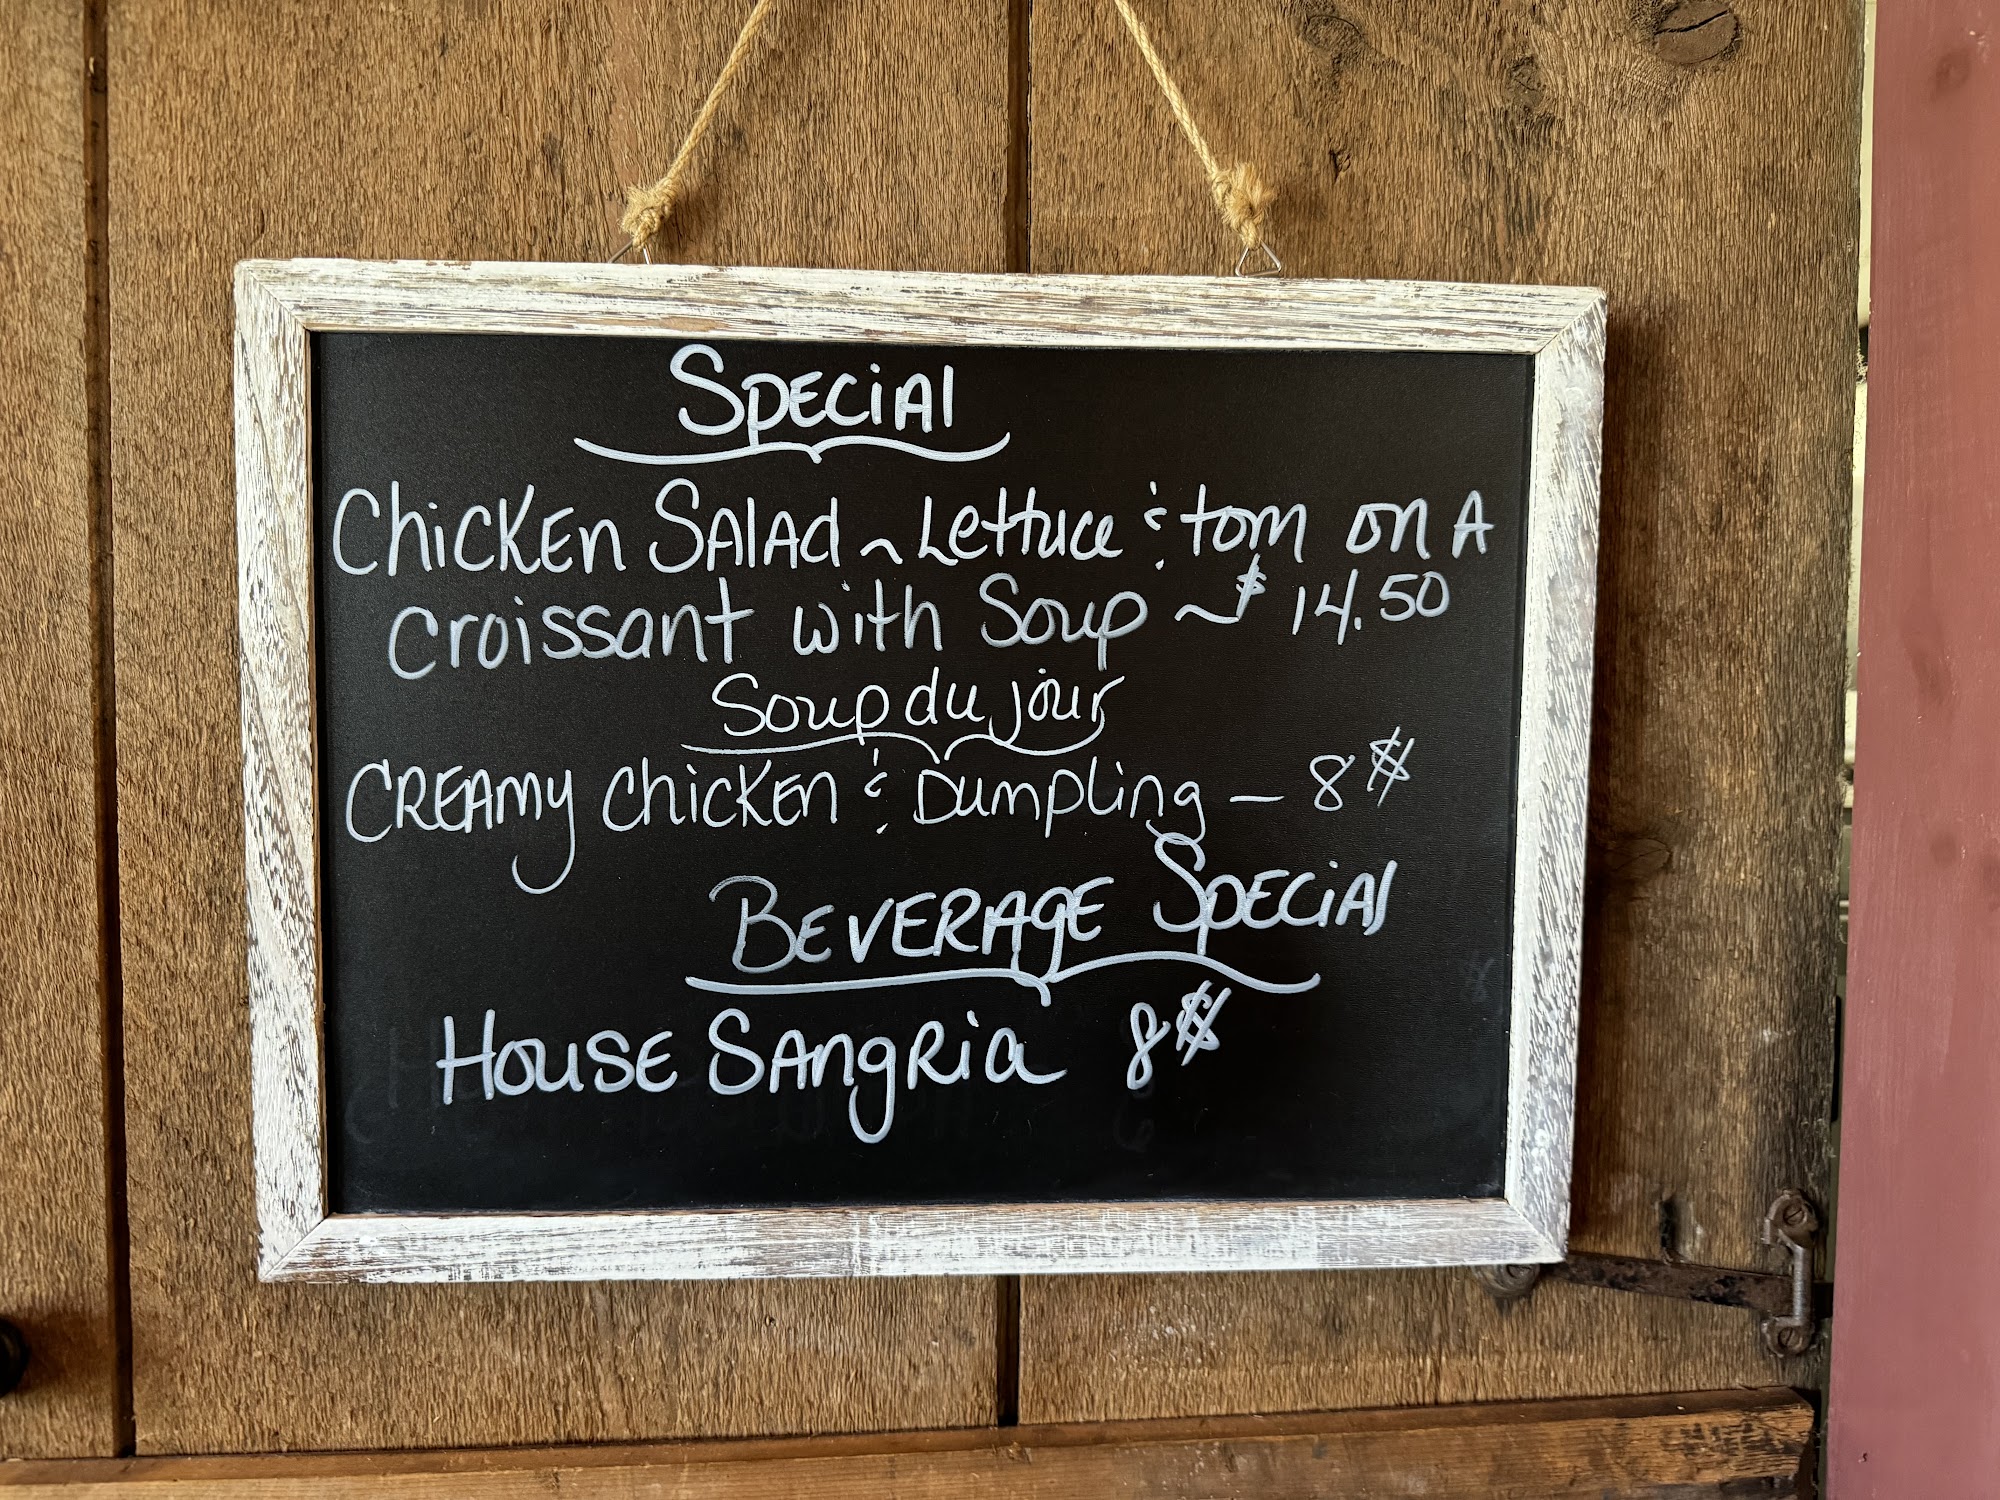 Special
Chicken Salad ~ Lettuce & tom on A
croissant with Soup ~ $ 14.50
Soup du jour
CREAMY Chicken & Dumpling — 8$
BEVERAGE SPECIAL
HOUSE SANGRIA 8$